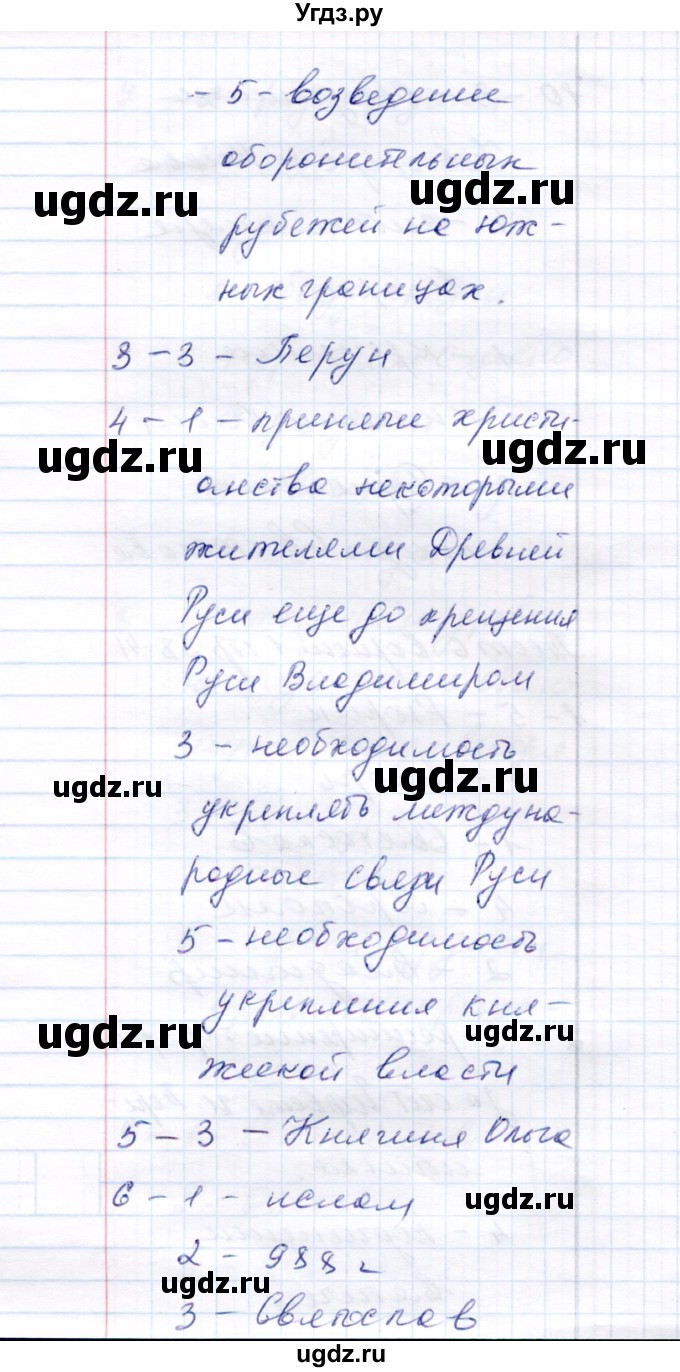 Угдз.ру
- 5 - возведение
оборонительных
ugdz.ru ugdz.ru
рубежей на юж-
ных границах.
3 - 3 - Перун
4 - 1 - принятие христи-
ugdz.ru ugdz.ru
анства некоторыми
жителями Древней
Руси еще до крещения
Руси Владимиром
3 - необходимость
ugdz.ru ugdz.ru
укреплять междуна-
родные связи Руси
5 - необходимость
укрепления кня-
ugdz.ru ugdz.ru
жеской власти
5 - 3 - Княгиня Ольга
6 - 1 - ислам
ugdz.ru
2 - 988 г
ugdz.ru
3 - Святослав
ugdz.ru